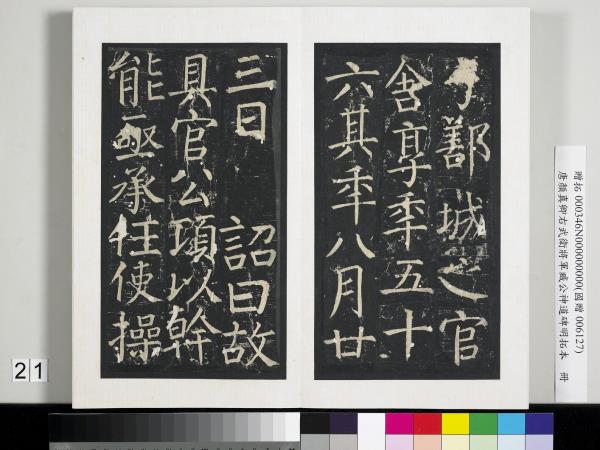 于鄯城之官
舍享年五十
六其年八月廿
三日 詔曰故
具官公頃以幹
能亟承任使操
贈拓 000346N000000000(國贈 006127)
唐顏真卿右武衛將軍臧公神道碑明拓本 冊
21